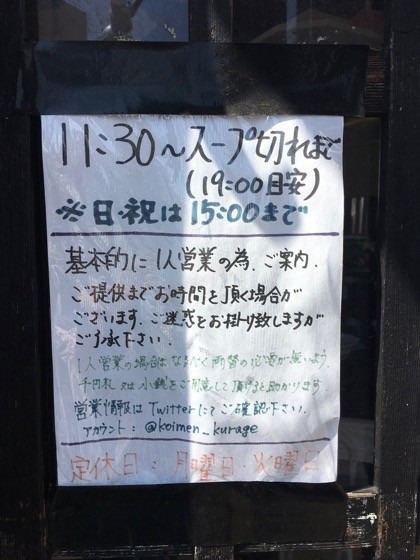 11:30〜スープ切れまで
(19:00目安)
※日・祝は15:00まで
基本的に1人営業の為、ご案内、
ご提供までお時間を頂く場合が
ございます。ご迷惑をお掛け致しますが
ご了承下さい。
1人営業の場合はなるべく両替の必要が無いよう、
千円札又は小銭をご用意して頂けると助かります。
営業情報はTwitterにてご確認下さい。
アカウント：@koimen_kurage
定休日：月曜日・火曜日